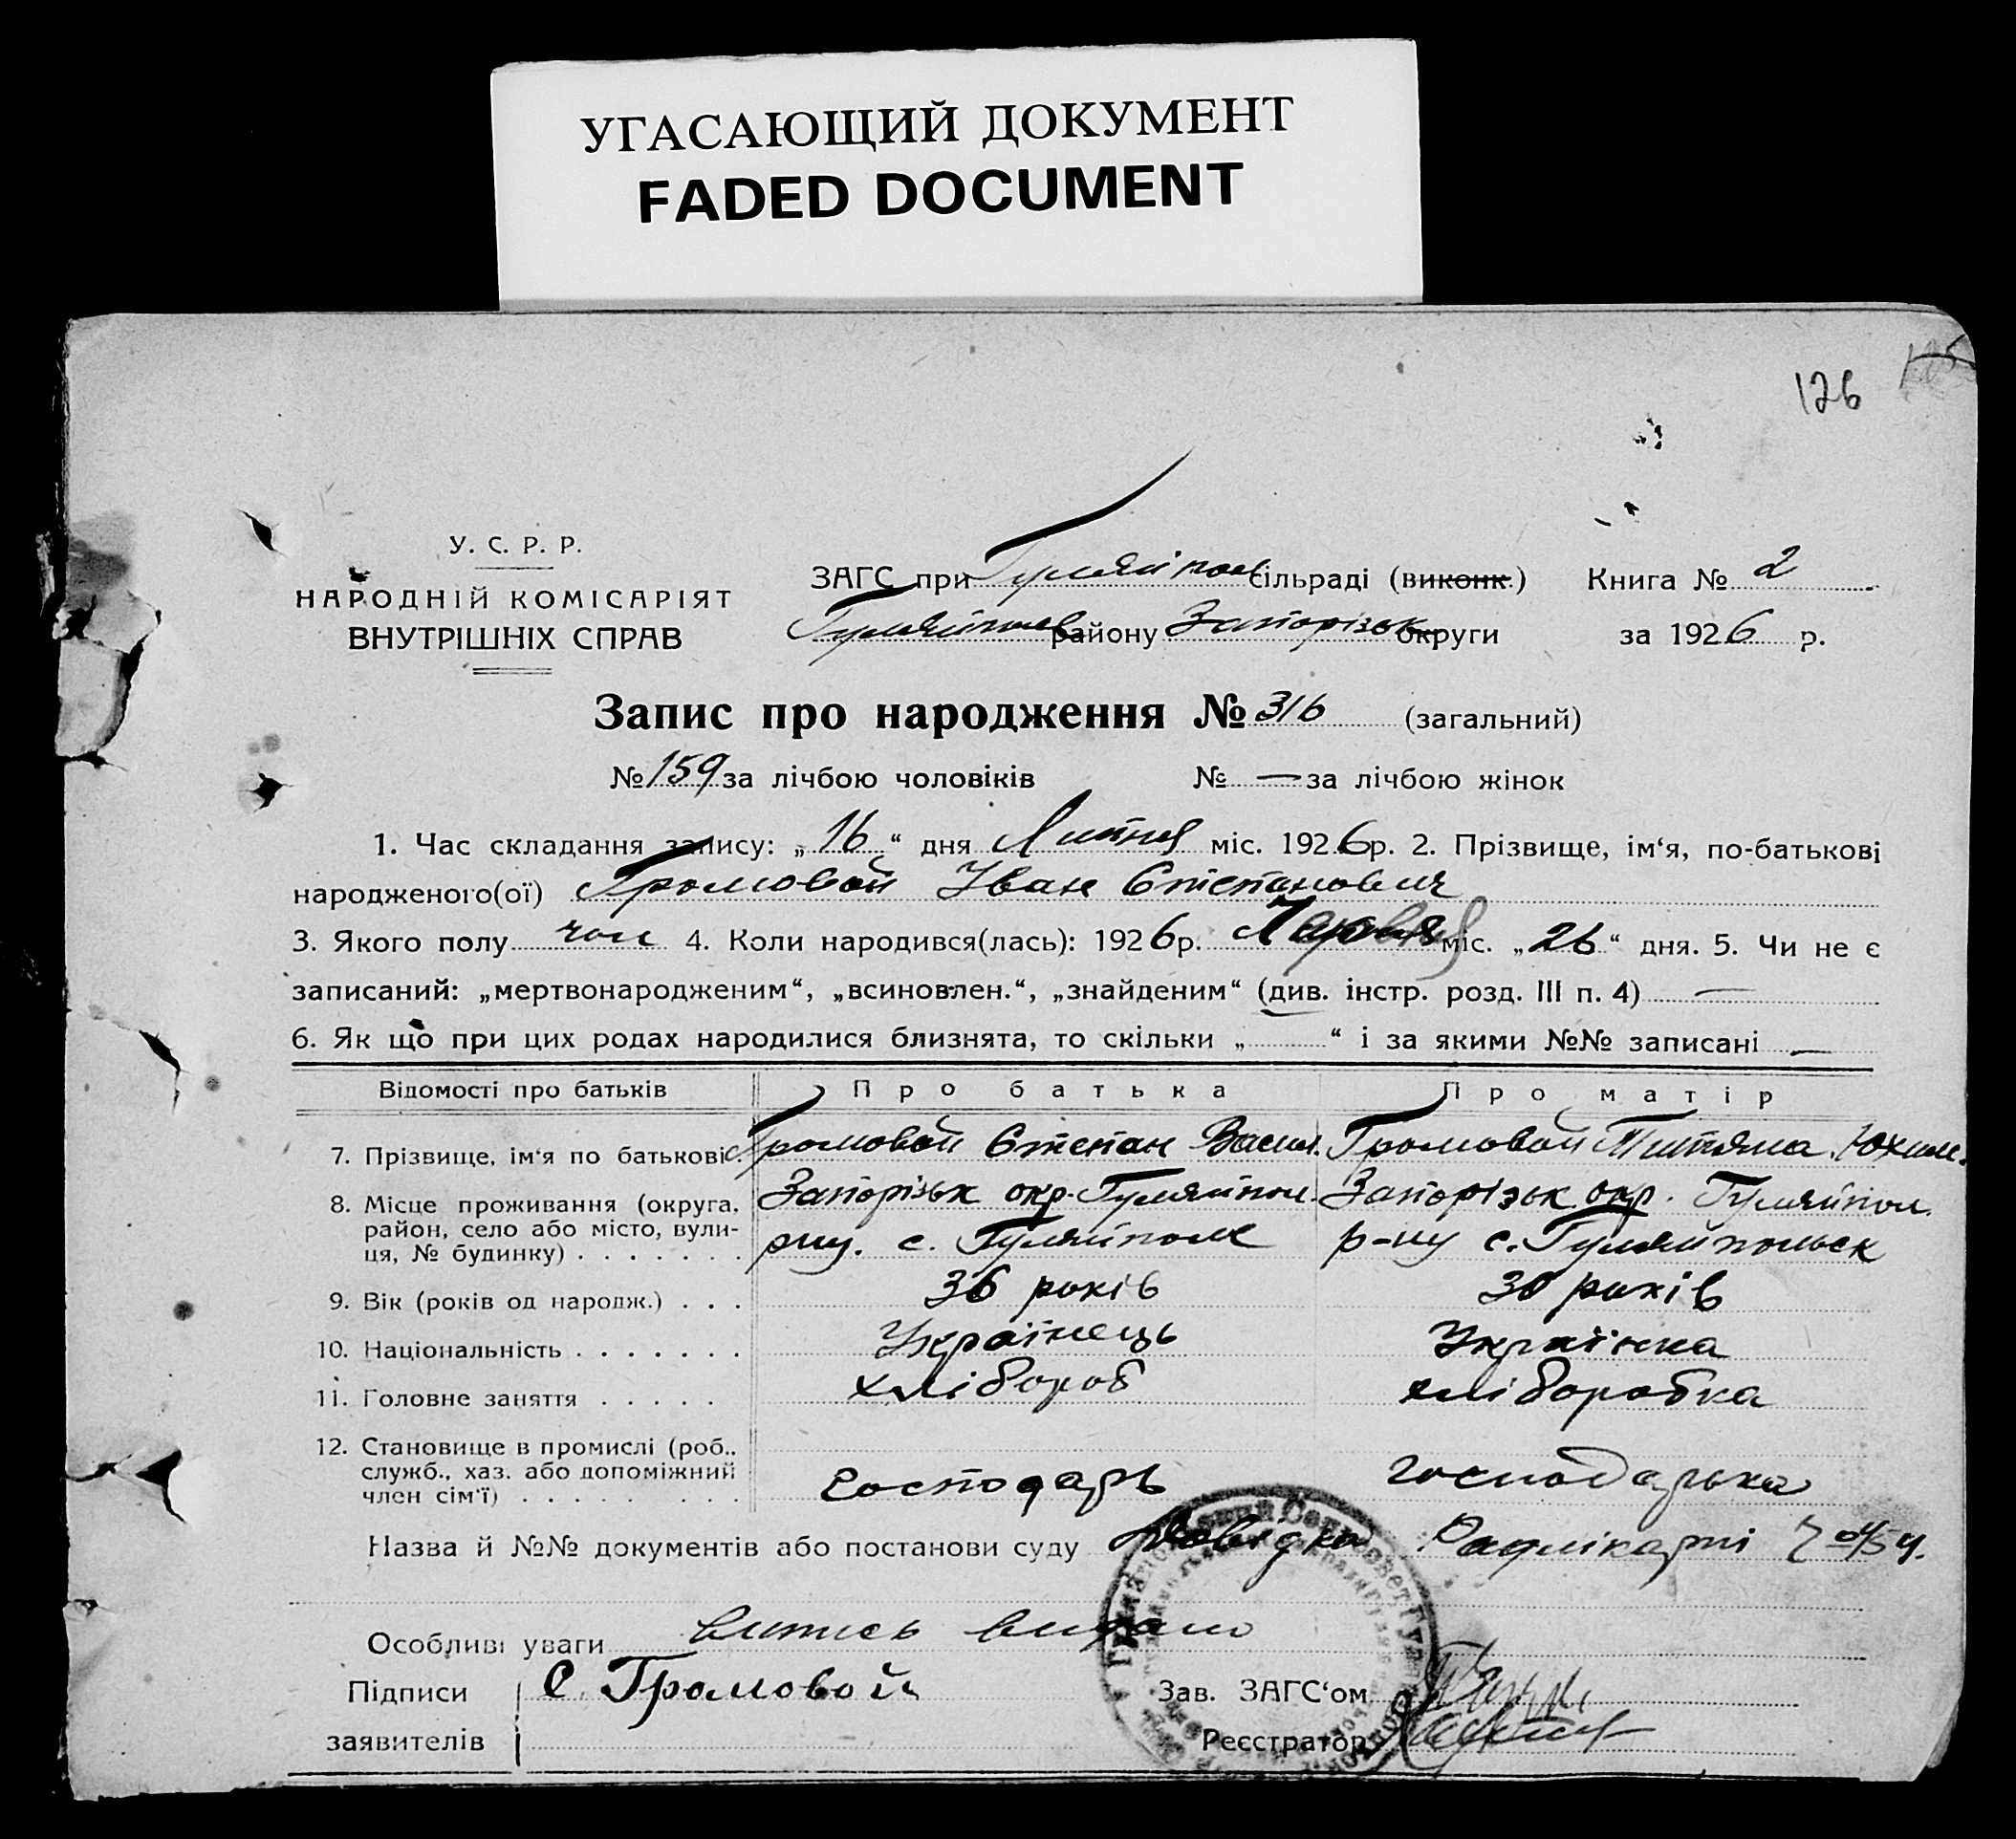 УГАСАЮЩИЙ ДОКУМЕНТ
FADED DOCUMENT
126
У. С. Р. Р.
НАРОДНІЙ КОМІСАРІЯТ
ВНУТРІШНІХ СПРАВ
ЗАГС при Гуляйпол сільраді (виконк.) Книга № 2
Гуляйпілев району Запорізьк округи за 1926 р.
Запис про народження № 316 (загальний)
№ 159 за лічбою чоловіків № — за лічбою жінок
1. Час складання запису: „16“ дня Липня міс. 1926 р. 2. Прізвище, ім‘я, по-батькові
народженого(ої) Громовой Іван Степанович
3. Якого полу чол 4. Коли народився(лась): 1926 р. міс. „26“ дня. 5. Чи не є
записаний: „мертвонародженим“, „всиновлен.“, „знайденим“ (див. інстр. розд. III п. 4) —
6. Як що при цих родах народилися близнята, то скільки „ “ і за якими №№ записані —
Відомості про батьків Про батька Про матір
7. Прізвище, ім‘я по батькові. Громовой Степан Васил. Громовой Титяна Юхим.
8. Місце проживання (округа, Запорізьк окр. Гуляйпол. Запорізьк окр. Гуляйпол.
район, село або місто, вули-
ця, № будинку) . . . . . . . рну. с. Гуляйполе р-ну с. Гуляйпольск
9. Вік (років од народж.) . . . 36 років 30 років
10. Національність . . . . . . . Українець Українка
11. Головне заняття . . . . . хлібороб хліборобка
12. Становище в промислі (роб.,
служб., хаз. або допоміжний
член сім‘ї) . . . . . . . . господарь господарька
Назва й №№ документів або постанови суду Довідка Радлікарні
Особливі уваги випись видано
Підписи С. Громовой Зав. ЗАГС‘ом
заявителів Реєстратор